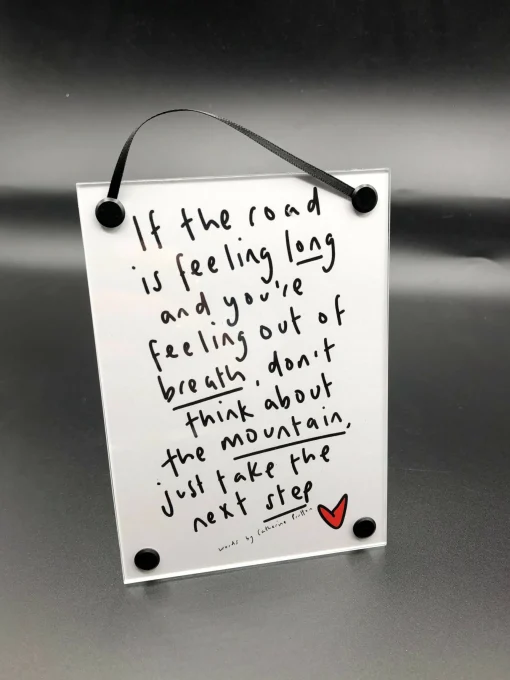 If the road
is feeling long
and you're
feeling out of
breath, don't
think about
the mountain,
just take the
next step
words by Catherine